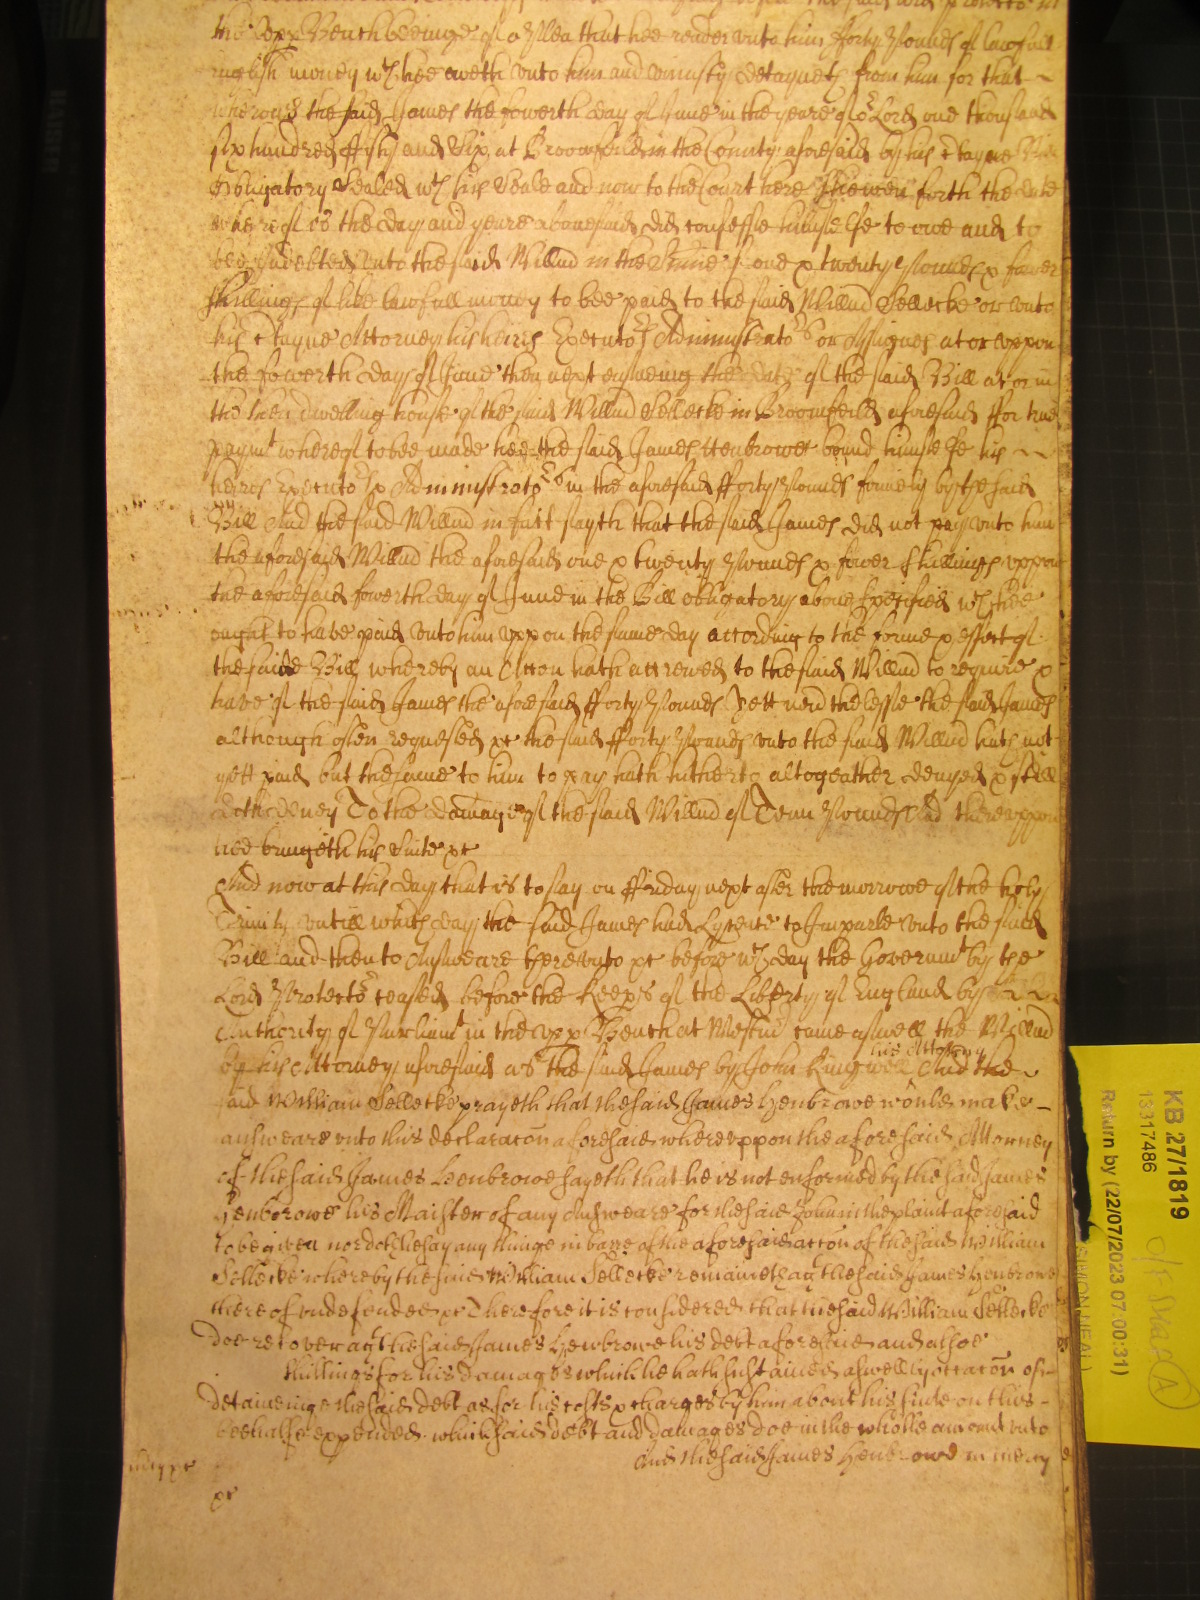 the upp Bench beeinge of a Plea that hee render unto him fforty Pounds of lawfull
English money wch hee oweth unto him and uniustly detayneth from him for that
whereas the said James the fowerth day of June in the yeare of or Lord one thousand
six hundred ffifty and Six at Broomfeild in the County aforesaid by his ctayne Bill
Obligatory Sealed wth his Seale and now to the Court here shewen forth the date
whereof is the day and yeare abovesaid did confesse himselfe to owe and to
bee indebted unto the said Willm in the Summe of one & twenty Pounds & fower
shillings of like lawfull money to bee paid to the said Willm Sellecke or unto
his ctayne Attorney his heires Executors Administrators or Assignes at or uppon
the fowerth day of June then next ensueing the date of the said Bill at or in
the then dwelling house of the said Willm Sellecke in Broomfeild aforesaid ffor true
paymt whereof to bee made hee the said James Henbrowe bound himselfe his
heires Executors & Administrators in the aforesaid fforty Pounds firmely by the said
Bill And the said Willm in fact sayth that the said James did not pay unto him
the aforesaid Willm the aforesaid one & twenty Pounds & fower shillings uppon
the aforesaid fowerth day of June in the Bill obligatory above specified wch hee
ought to have paid unto him uppon the same day according to the forme & effect of
the saide Bill whereby an Accon hath accrewed to the said Willm to require &
have of the said James the aforesaid fforty Pounds Yett neverthelesse the said James
although often requested &c the said fforty Pounds unto the said Willm hath not
yett paid but the same to him to pay hath hitherto altogeather denyed & still
doth deney To the damage of the said Willm of Tenn Pounds And thereuppon
hee bringeth his Suite &c
And now at this day that is to say on ffriday next after the morrowe of the holy
Trinity untill which day the said James had Lycence to Imparle unto the said
Bill and then to Answeare thereunto &c before wch day the Governmt by the
Lord Protector ceased before the Keeprs of the Liberty of England by
Authority of Parliamt in the upp Bench at Westmr came aswell the Willm
by his Attorney aforesaid as the said James by John Kingwell his Attorney And the
said William Sellecke prayeth that the said James Henbrowe would make
answeare unto this declaracon aforesaid whereuppon the aforesaid Attorney
of the said James Henbrowe sayeth that he is not enformed by the said James
Henbrowe his Maister of any Answeare for the said James in the plaint aforesaid
to be given nor doth he say any thinge in barre of the aforesaid accon of the said William
Sellecke whereby the said William Sellecke remaineth agt the said James Henbrowe
thereof undefended &c Therefore it is considered that the said William Sellecke
doe recover agt the said James Henbrowe his debt aforesaid and alsoe
shillings for his damages which he hath sustained aswell by occacon of
detaineinge the said debt as for his costs & charges by him about his suite on this
behalfe expended which said debt and damages doe in the wholle amount unto
And the said James Henbrowe in mercy
mercy &c
&c
KB 27/1819
13317486
Return by (22/07/2023 07:00:31)
(SIMON NEAL)
A